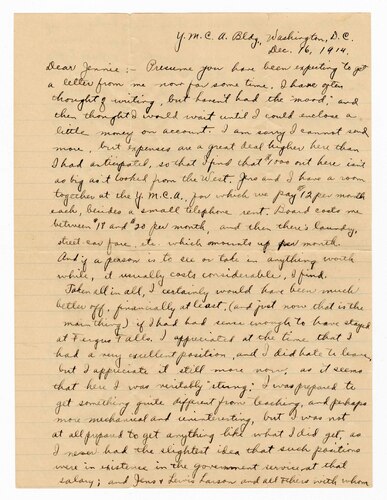 Y.M.C.A. Bldg, Washington, D.C.
Dec. 16, 1914.
Dear Jennie:- Presume you have been expecting to get
a letter from me now for some time. I have often
thought of writing, but haven't had the "mood," and
then thought I would wait until I could enclose a
little money on account. I am sorry I cannot send
more, but expenses are a great deal higher here than
I had anticipated, so that I find that $1,000 out here isn't
as big as it looked from the West. Jens and I have a room
together at the Y.M.C.A., for which we pay $12 per month
each, besides a small telephone rent. Board costs me
between $18 and $20 per month, and then there's laundry,
street car fare, etc. which amounts up per month.
And if a person is to see or take in anything worth
while, it usually costs considerable, I find.
Taken all in all, I certainly would have been much
better off, financially at least, (and just now that is the
main thing) if I had had sense enough to have stayed
at Fergus Falls. I appreciated at the time that I
had a very excellent position, and I did hate to leave,
but I appreciate it still more now, as it seems
that here I was veritably "strung." I was prepared to
get something quite different from teaching, and perhaps
more mechanical and uninteresting, but I was not
at all prepared to get anything like what I did get, as
I never had the slightest idea that such positions
were in existence in the government service, at that
salary; and Jens & Lewis Larson and all others with whom